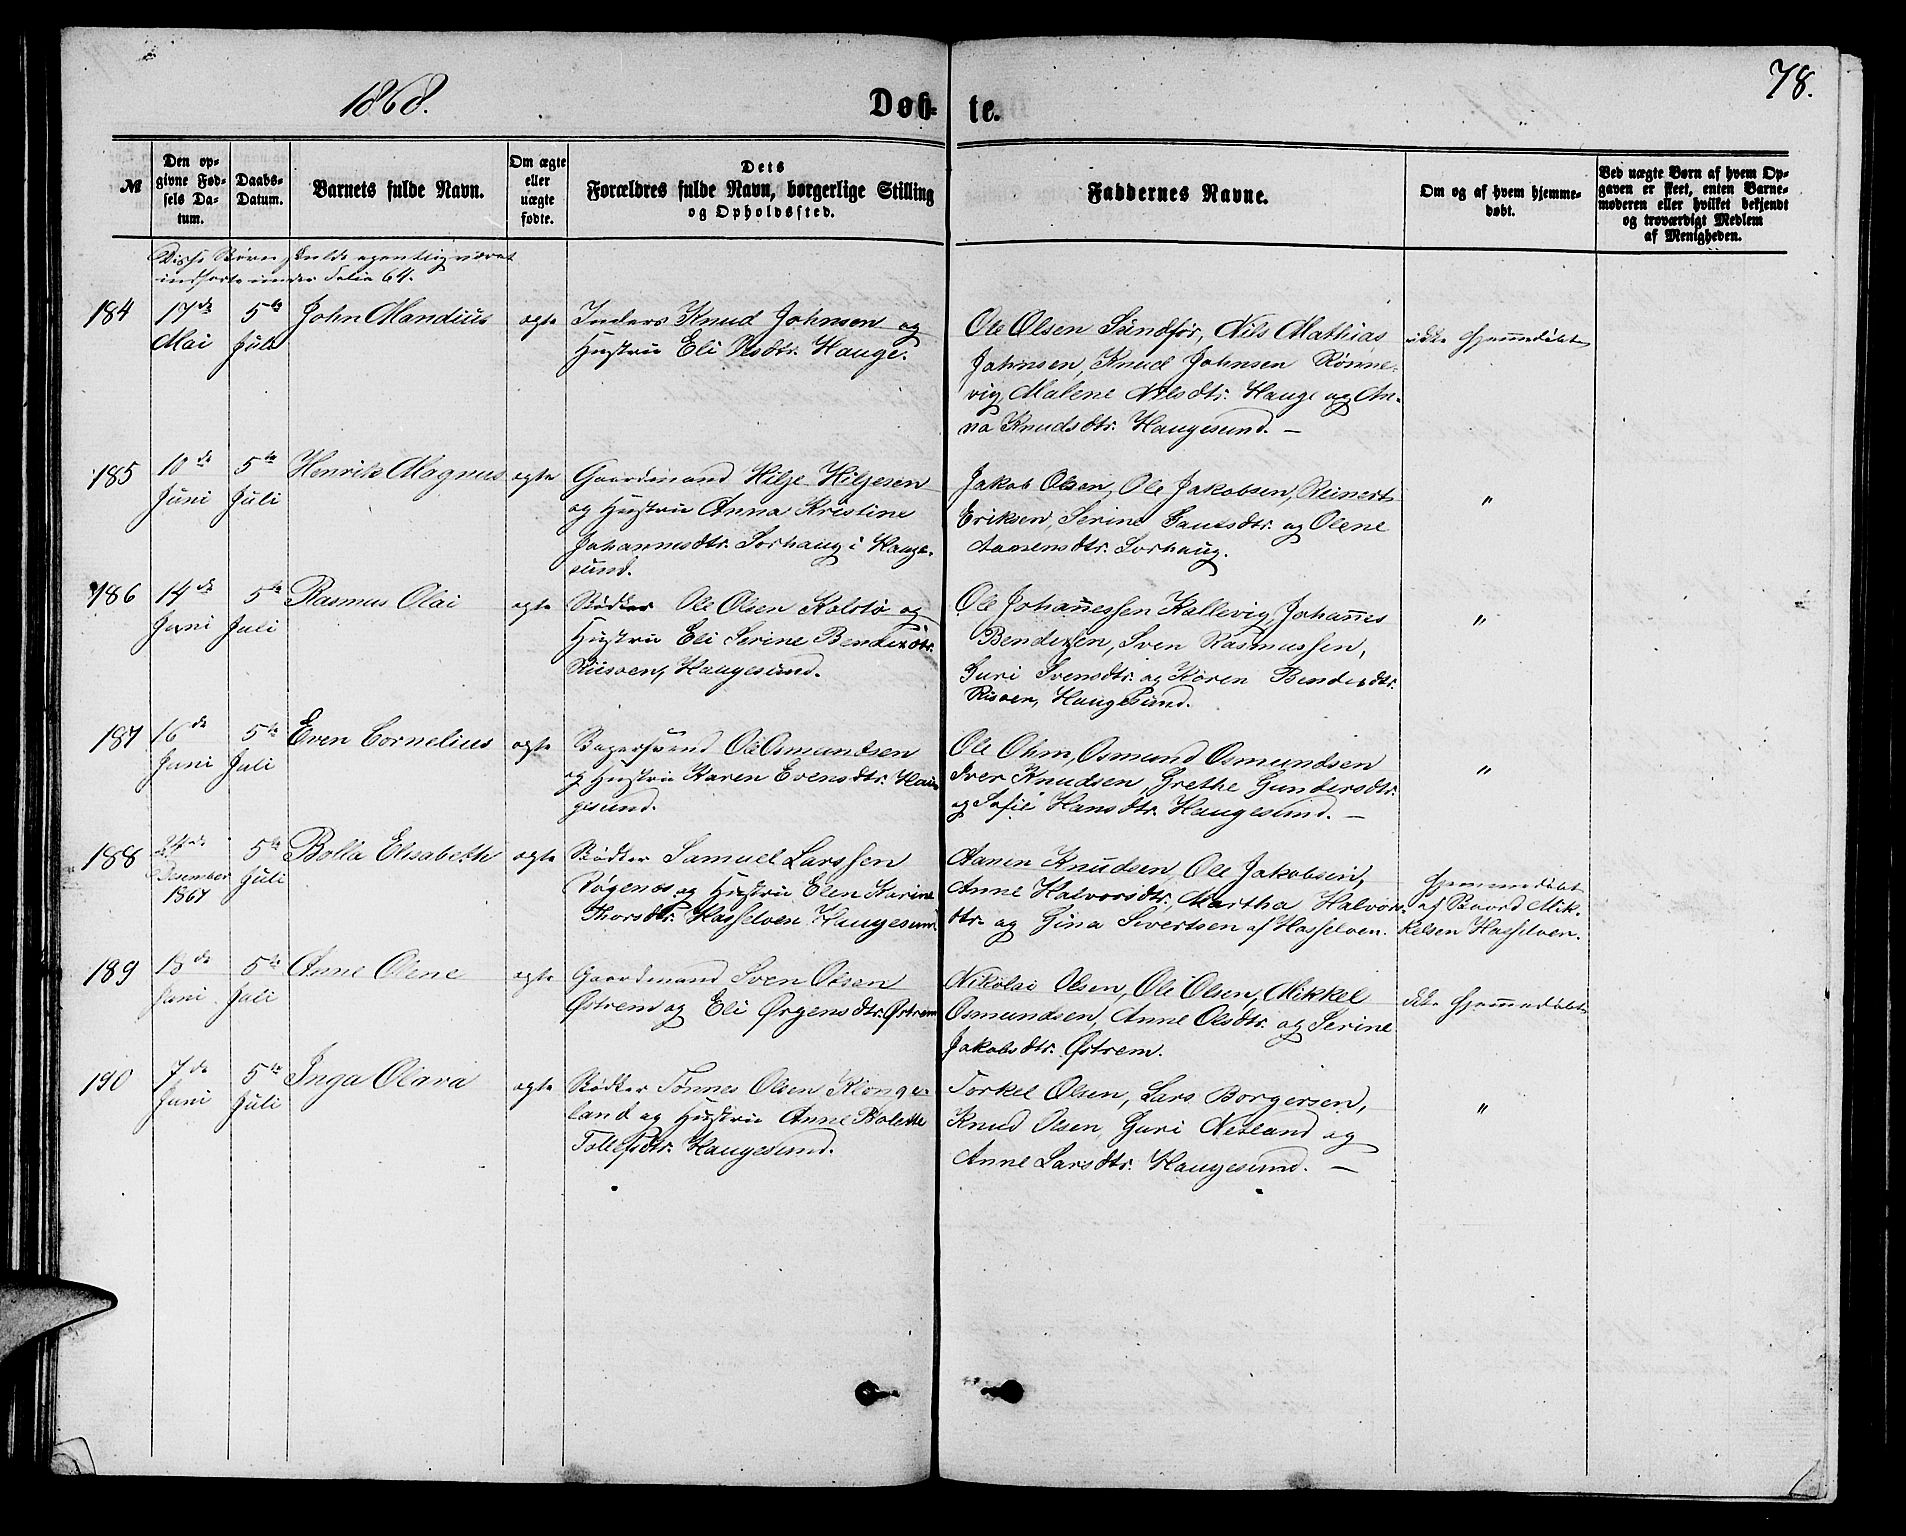 1868.
Døb-
te.
78.
№
Den op-
givne Fød-
sels Da-
tum.
Daabs-
Datum.
Barnets fulde Navn.
Om ægte
eller
uægte
fødte.
Dets
Forældres fulde Navn, borgerlige Stilling
og Opholdssted.
Faddernes Navne.
Om og af hvem hjemme-
døbt.
Ved uægte Børn af hvem Op-
gaven er skeet, enten Barne-
moderen eller hvilket bekjendt
og troværdigt Medlem
af Menigheden.
Disse Børn skulde egentlig været
indførte under Folio 64.
184
17de
Mai
5te
Juli
John Mandius
ægte
Inders Knud Johnsen og
Hustru Eli Olsdtr. Hauge.
Ole Olsen Sundfør, Nils Mathias
Johnsen, Knud Johnsen Rønne-
vig, Malene Nilsdtr. Hauge og An-
na Knudsdtr. Haugesund. —
ikke hjemmedøbt
185
10de
Juni
5te
Juli
Henrik Magnus
ægte
Gaardmand Hilje Hiljesen
og Hustru Anna Kristine
Johannesdtr. Sørhaug i Hauge-
sund.
Jakob Olsen, Ole Jakobsen, Reinert
Eriksen, Serine Gautsdtr. og Olene
Aanensdtr. Sørhaug.
"
186
14de
Juni
5te
Juli
Rasmus Olai
ægte
Bødker Ole Olsen Kolstø og
Hustru Eli Serine Bendixdtr.
Risøen, Haugesund.
Ole Johannessen Kallevig, Johannes
Bendixen, Sven Rasmussen,
Guri Svensdtr. og Karen Bendixdtr.
Risøen, Haugesund.
"
187
16de
Juni
5te
Juli
Even Cornelius
ægte
Bagersvend Ole Osmundsen
og Hustru Karen Evensdtr. Hau-
gesund.
Ole Ohm, Osmund Osmundsen
Iver Knudsen, Grethe Gundersdtr.
og Sofie Hansdtr. Haugesund. —
"
188
24de
Desember
1867
5te
Juli
Bolla Elisabeth
ægte
Bødker Samuel Larssen
Røgenes og Hustru Elen Karine
Thorsdtr. Hasseløen Haugesund.
Aanen Knudsen, Ole Jakobsen,
Anne Halvorsdtr., Martha Halvors-
dtr. og Gina Sivertsen af Hasseløen.
hjemmedøbt
af Baard Mik-
kelsen Hasseløen.
189
18de
Juni
5te
Juli
Anne Olene
ægte
Gaardmand Sven Olsen
Østrem og Eli Ørgensdtr. Østrem
Nikolai Olsen, Ole Olsen, Mikkel
Osmundsen, Anne Olsdtr. og Serine
Jakobsdtr. Østrem.
ikke hjemmedøbt
190
7de
Juni
5te
Juli
Inga Olava
ægte
Bødker Tønnes Olsen Klonge-
land og Hustru Anne Bolette
Tollefsdtr. Haugesund.
Torkel Olsen, Lars Borgersen,
Knud Olsen, Guri Netland og
Anne Larsdtr. Haugesund. —
"